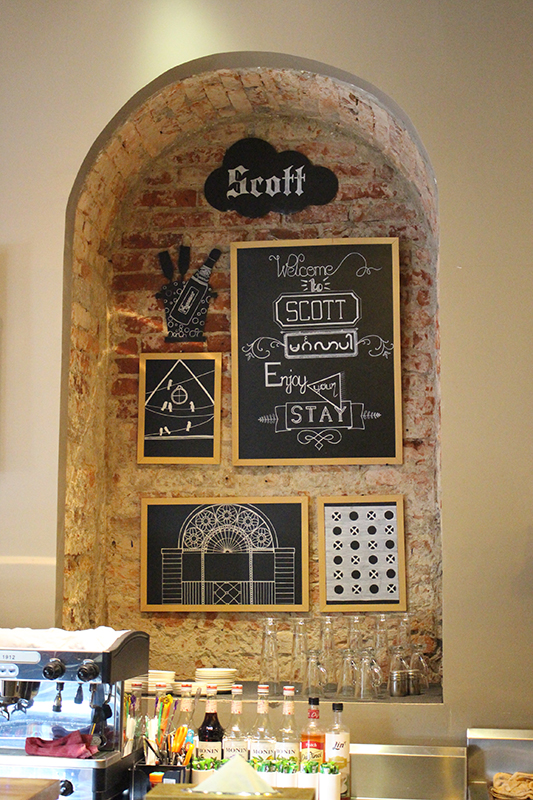 Scott
Welcome
to
SCOTT
မင်္ဂလာပါ
Enjoy your
STAY
1912
MONIN
MONIN
MONIN